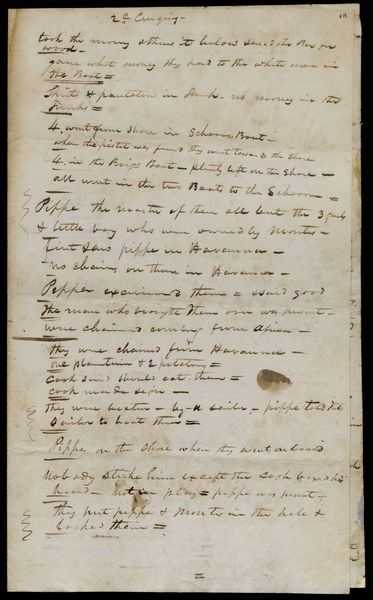 2d Cinquez -
took the money & threw it below saved the Box for
wood -
gave what money they had to the white men in
the Boat =
Shirts & pantaloons in trunk. no money in the
trunks =
4. went from shore in Schooners Boat -
when the pistol was fired they went towards the Shore
4. in the Brigs Boat - plenty left on the Shore -
all went in the two Boats to the Schooner =
Pippe the master of them all but the 3 girls
& little boy who were owned by Montes -
first saw pippe in Havanna -
no chains on them in Havanna -
Pippe examined them = & said good
The man who brought them over was present -
were chained coming from African -
They were chained from Havanna -
one plantain & 2 potatoes =
Cook said should eat them =
Cook made sign -
They were beaten - by a sailor - pippe told the
Sailor to beat them =
Pippe on the Shore when they went on board
Nobody strike him except the Cook
head - not in play = pippe was present -
They put pippe & Montes in the hole &
locked them =